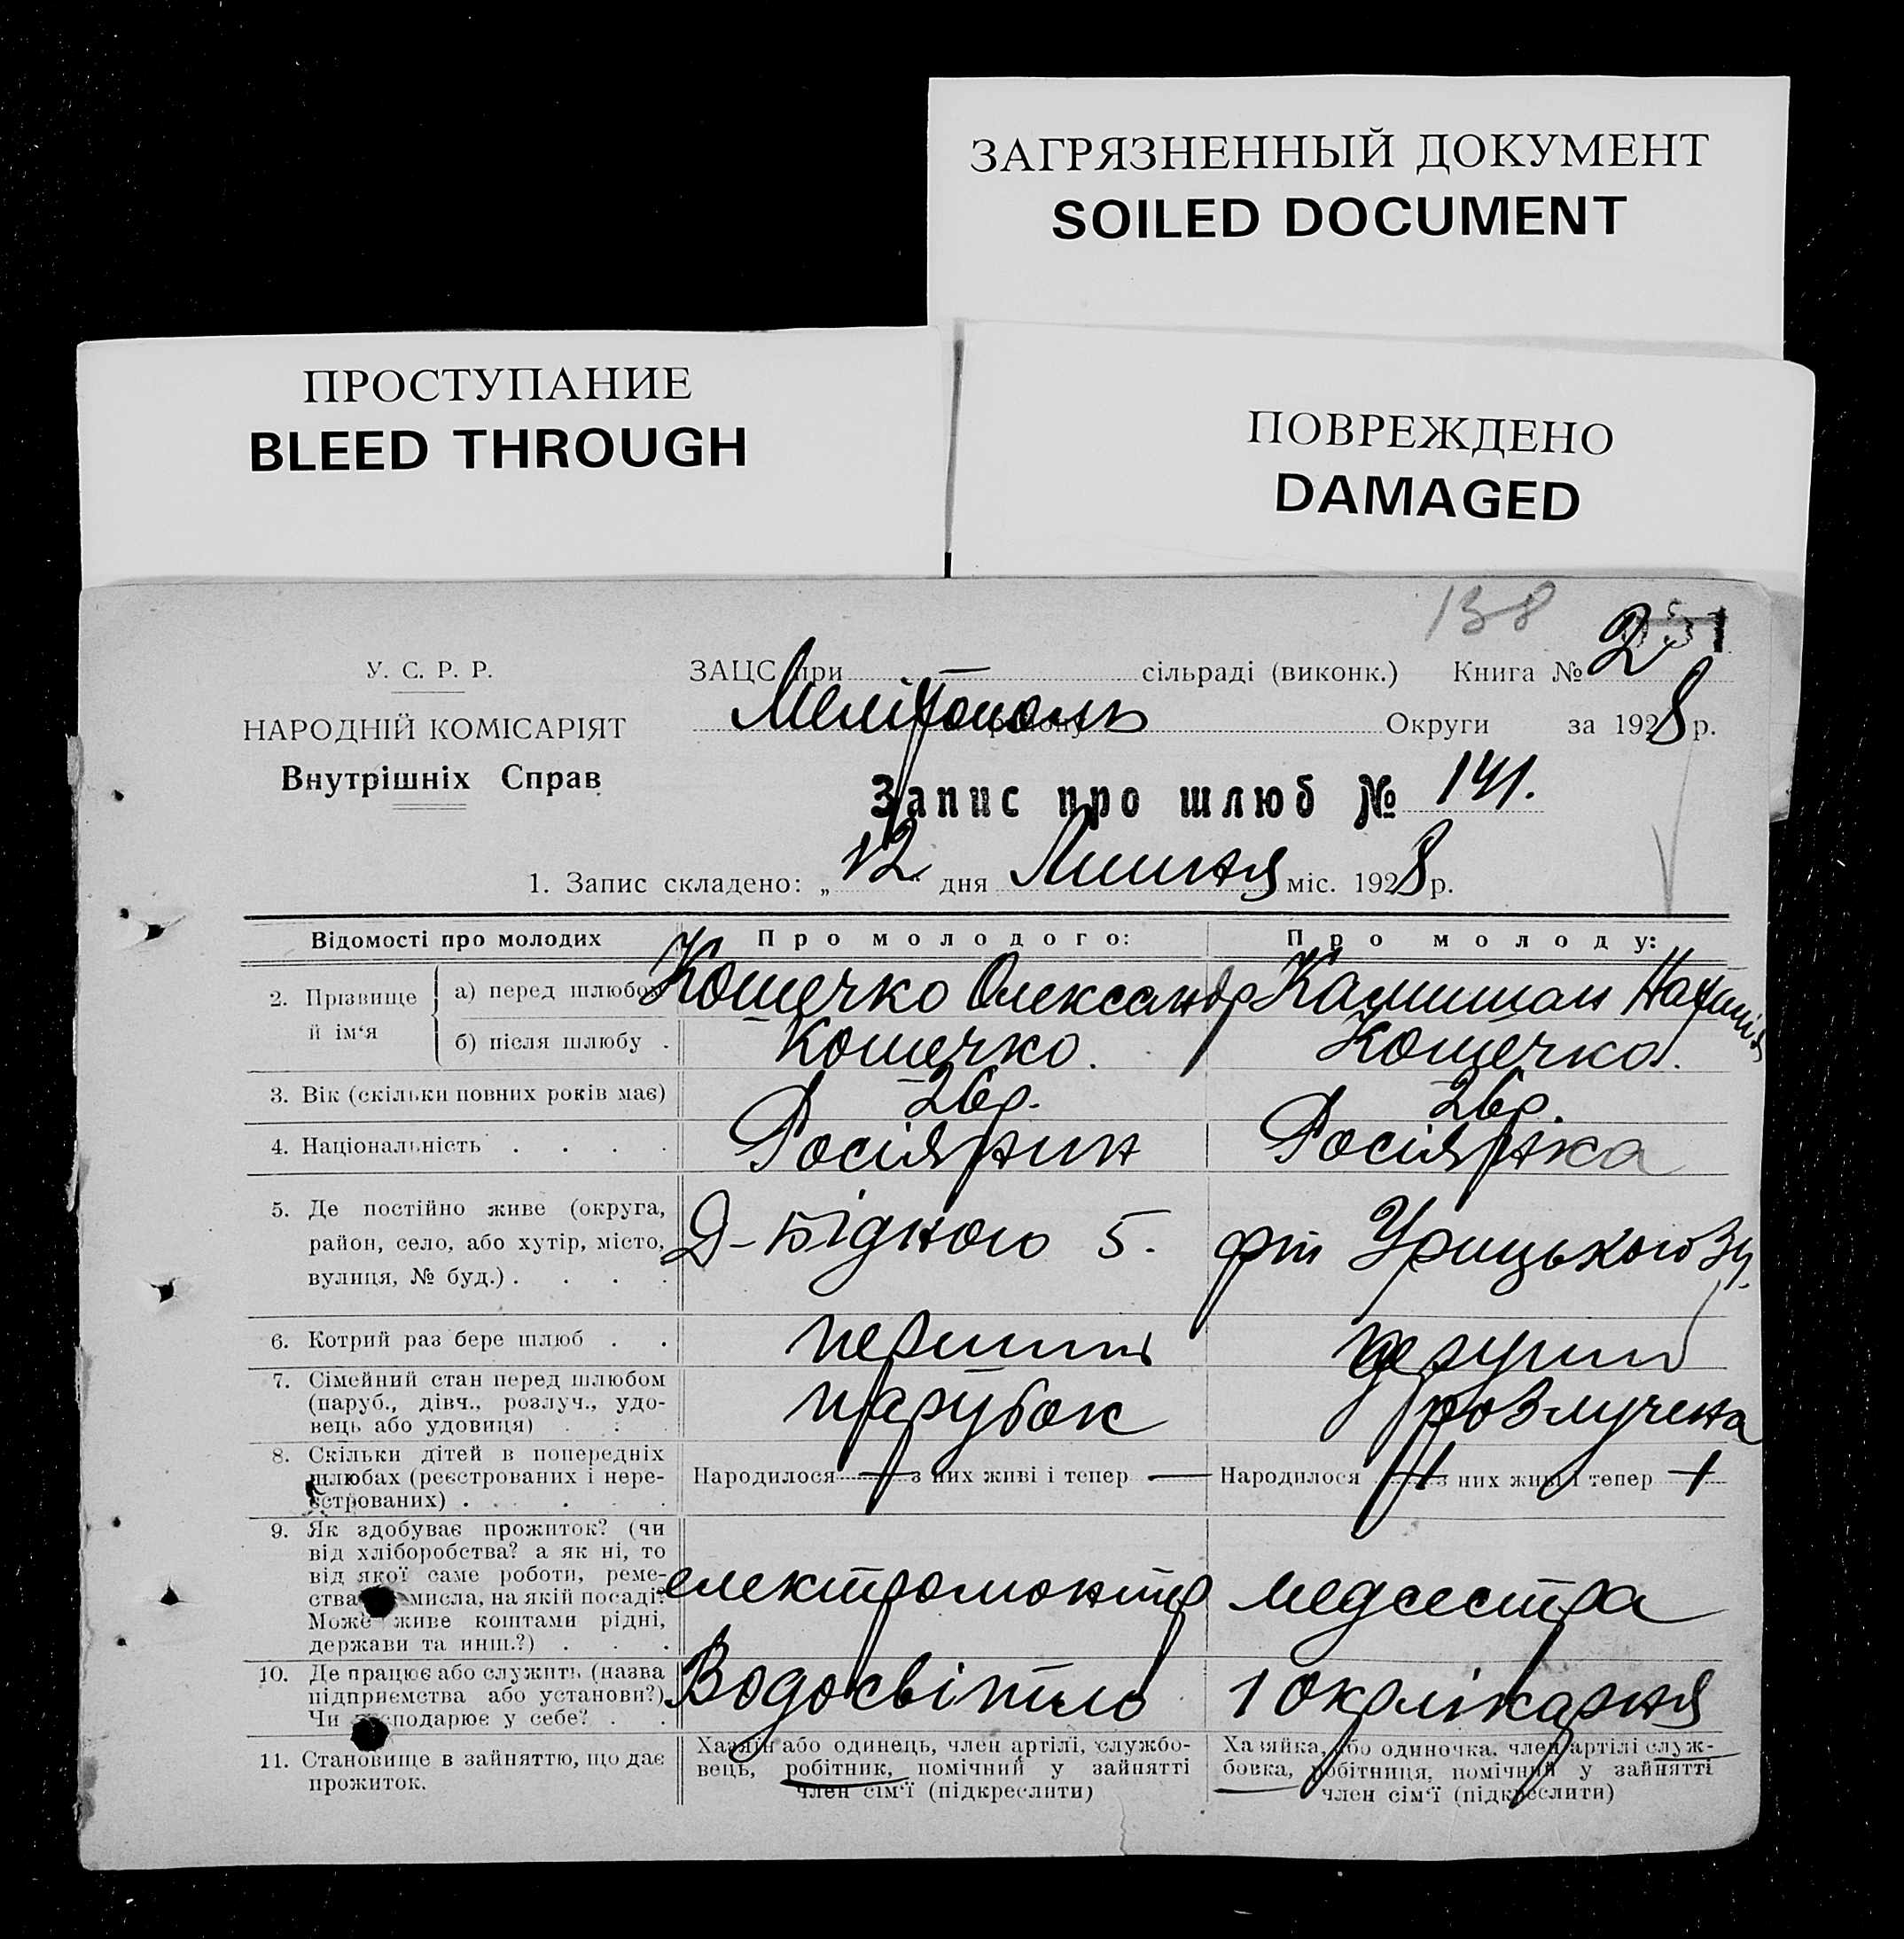 ЗАГРЯЗНЕННЫЙ ДОКУМЕНТ
SOILED DOCUMENT
ПРОСТУПАНИЕ
BLEED THROUGH
ПОВРЕЖДЕНО
DAMAGED
138
У. С. Р. Р.
НАРОДНІЙ КОМІСАРІЯТ
Внутрішніх Справ
ЗАЦС при — сільраді (виконк.) Книга № 2
Мелітополь району Округи за 1928 р.
Запис про шлюб № 141.
1. Запис складено: „12 дня Липня міс. 1928 р.
Відомості про молодих
Про молодого:
Про молоду:
2. Прізвище й ім‘я
а) перед шлюбом
Кошечко Олександр
Наталія
б) після шлюбу .
Кошечко.
Кошечко.
3. Вік (скільки повних років має)
26р.
26р.
4. Національність . . . .
Росіянин
Росіянка
5. Де постійно живе (округа,
район, село, або хутір, місто,
вулиця, № буд.) . . . .
Д-Бідного 5.
Урицького
6. Котрий раз бере шлюб . .
перший
другий
7. Сімейний стан перед шлюбом
(паруб., дівч., розлуч., удо-
вець або удовиця) . . .
парубок
розлучена
8. Скільки дітей в попередніх
шлюбах (реєстрованих і нере-
єстрованих) . . . .
Народилося — з них живі і тепер —
Народилося 1 з них живі і тепер 1
9. Як здобуває прожиток? (чи
від хліборобства? а як ні, то
від якої саме роботи, реме-
ства мисла, на якій посаді?
Може живе коштами рідні,
держави та инш.?) . . .
електромонтер
медсестра
10. Де працює або служить (назва
підприємства або установи?)
Чи господарює у себе? . .
Водосвітло
1 окрлікарня
11. Становище в зайняттю, що дає
прожиток.
Хазяїн або одинець, член артілі, службо-
вець, робітник, помічний у зайнятті
член сім‘ї (підкреслити)
Хазяйка, або одиночка, член артілі служ-
бовка, робітниця, помічний у зайнятті
член сім‘ї (підкреслити)